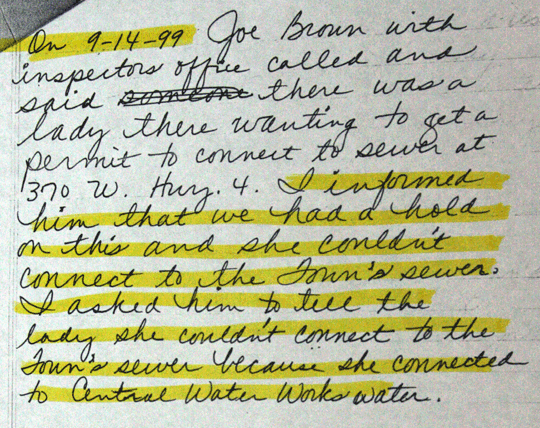 On 9-14-99 Joe Brown with
inspectors office called and
said someone there was a
lady there wanting to get a
permit to connect to sewer at
370 W. Hwy. 4. I informed
him that we had a hold
on this and she couldn't
connect to the Town's sewer.
I asked him to tell the
lady she couldn't connect to the
Town's sewer because she connected
to Central Water Works water.